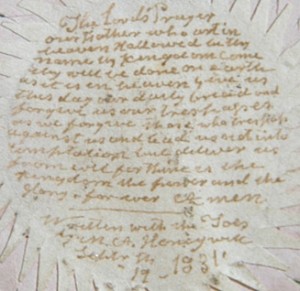 The Lord's Prayer
our Father who art in
heaven Hallowed be thy
name thy Kengdom Come
thy will be done on Earth
as it is in heaven give us
this day our daily bread and
forgive us our trespasses
as we forgive those who trespass
against us and lead us not into
temptation but deliver us
from evil for thine is the
Kingdom the power and the
Glory for ever Amen
Written with the Toes
Honeywell
1831